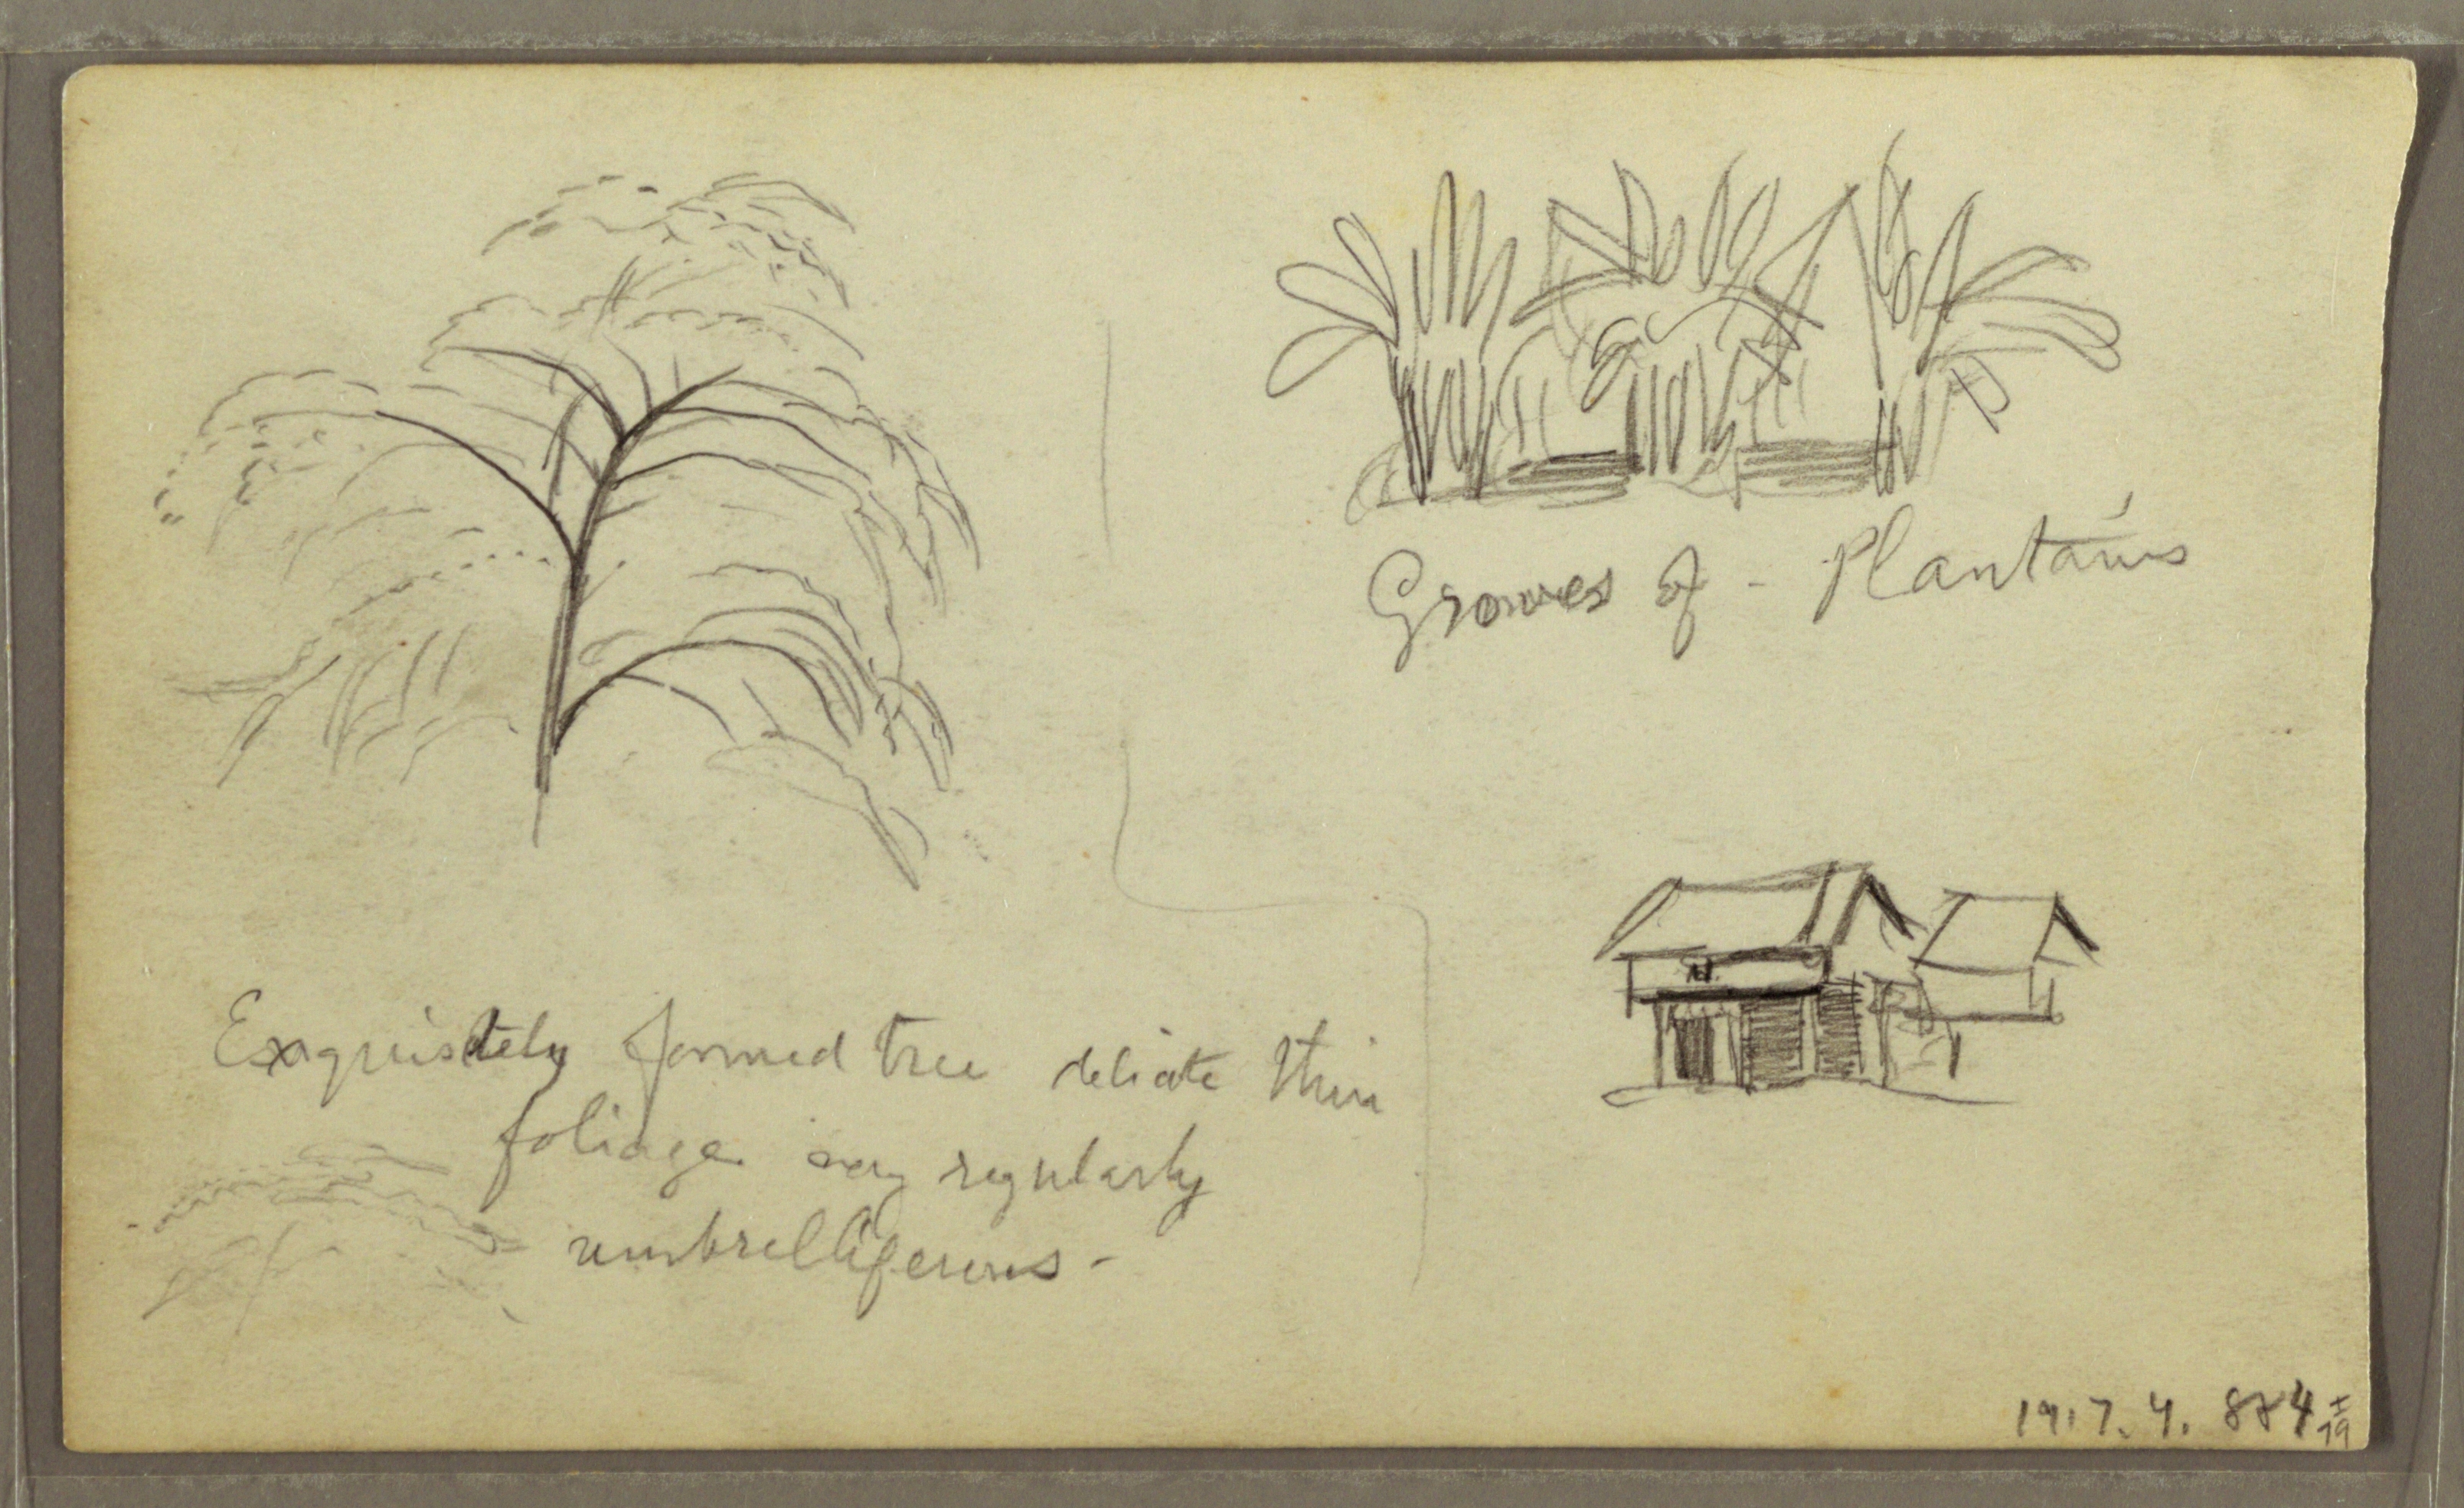 Groves of - Plantains
Exquisitely formed tree delicate thin
foliage very regularly
umbrelliferous -
1917.4.